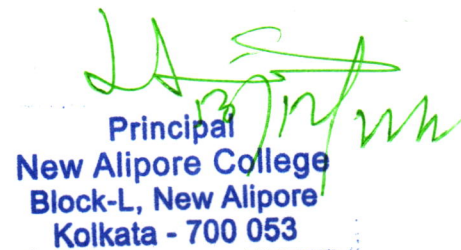 Principal
New Alipore College
Block-L, New Alipore
Kolkata - 700 053